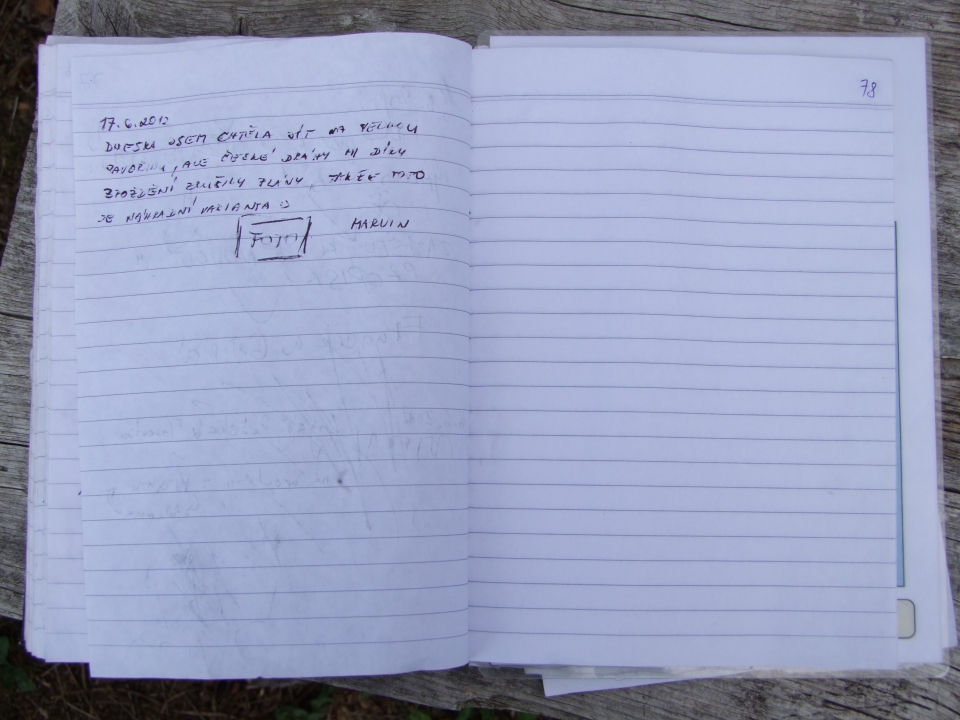 78
17.6.201
DNESKA JSEM CHTĚLA JÍT NA VELKOU
ALE ČESKÉ DRÁHY MI DÍKY
ZPOŽDĚNÍ ZRUŠILY PLÁNY, TAKŽE TOTO
JE NÁHRADNÍ VARIANTA :)
FOTO MARVIN